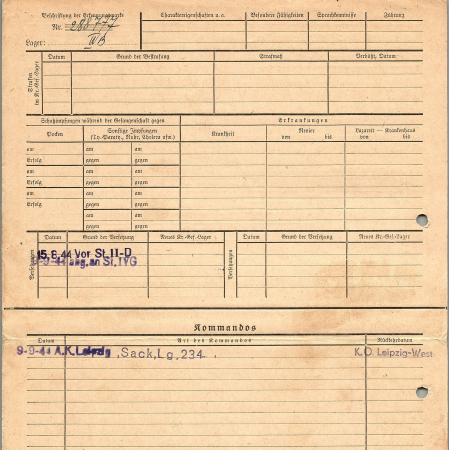 Beschriftung der Erkennungsmarke
Nr. 288777
Lager: IV B
Charaktereigenschaften u. a.
Besondere Fähigkeiten
Sprachkenntnisse
Führung
Strafen im Kr.-Gef.-Lager
Datum
Grund der Bestrafung
Strafmaß
Verbüßt, Datum
Schutzimpfungen während der Gefangenschaft gegen
Erkrankungen
Pocken
Sonstige Impfungen
(Ty.-Paraty., Ruhr, Cholera usw.)
Krankheit
Revier
von bis
Lazarett — Krankenhaus
von bis
am am am
Erfolg gegen gegen
am am am
Erfolg gegen gegen
am am am
Erfolg gegen gegen
am am am
Erfolg gegen gegen
am am
gegen gegen
Versetzungen
Datum
Grund der Versetzung
Neues Kr.-Gef.-Lager
Versetzungen
Datum
Grund der Versetzung
Neues Kr.-Gef.-Lager
15.8.44 Vor St. II-D
9-9-44 an St, IVG
Kommandos
Datum
Art des Kommandos
Rückkehrdatum
9-9-44 A.K. Leipzig, Sack, Lg, 234
K.O. Leipzig-West